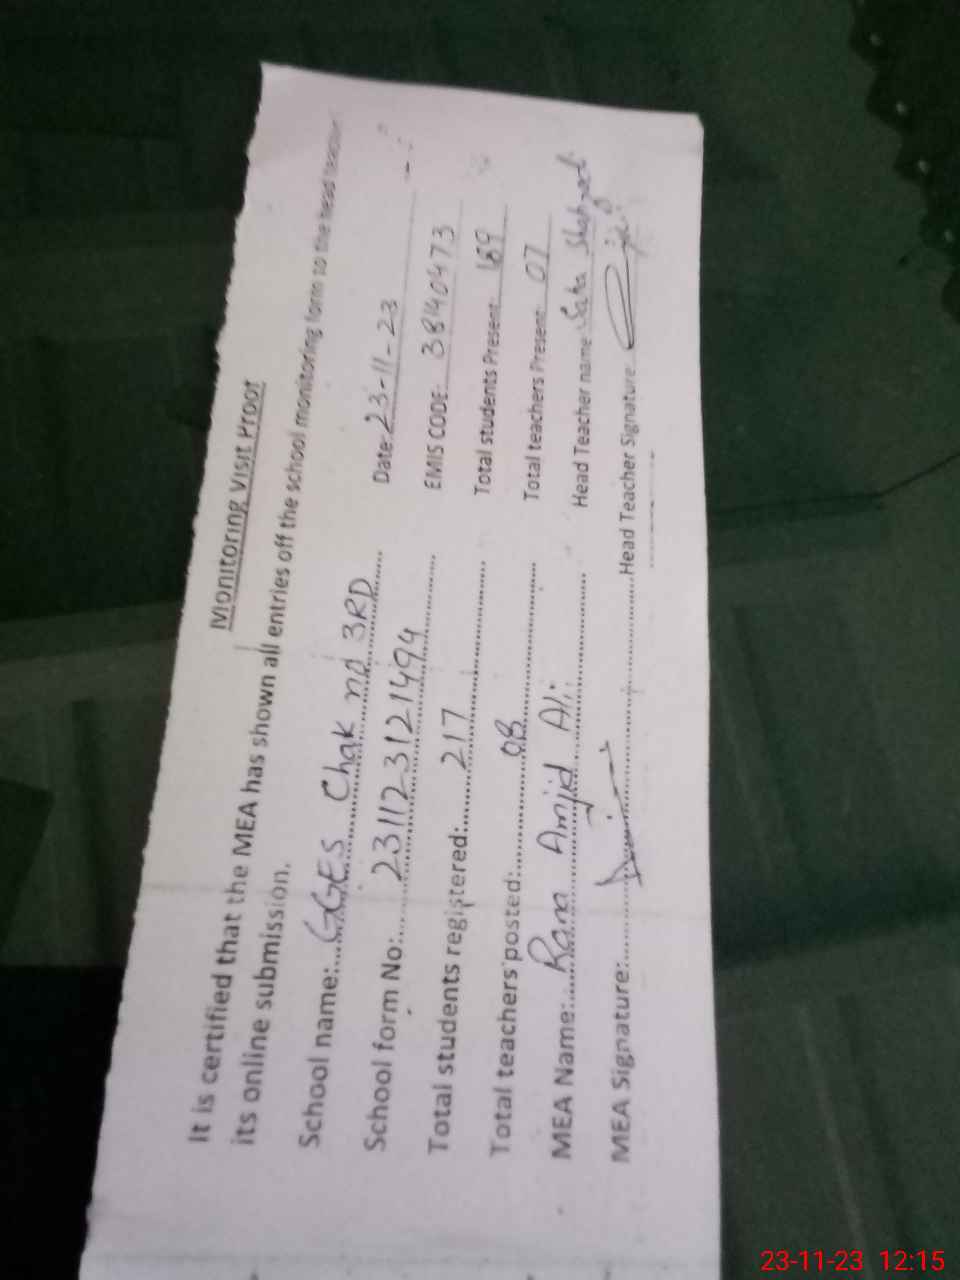 Monitoring Visit Proof
It is certified that the MEA has shown all entries off the school monitoring form to the head teacher
its online submission.
School name:....GGES Chak no 3RD..... Date: 23-11-23
School form No:....23112312 1494..... EMIS CODE: 38140473
Total students registered:.....217..... Total students Present: 169
Total teachers posted:.....08..... Total teachers Present: 07
MEA Name:.....Rana Amjid Ali..... Head Teacher name: Saha
MEA Signature:..........Head Teacher Signature
23-11-23 12:15